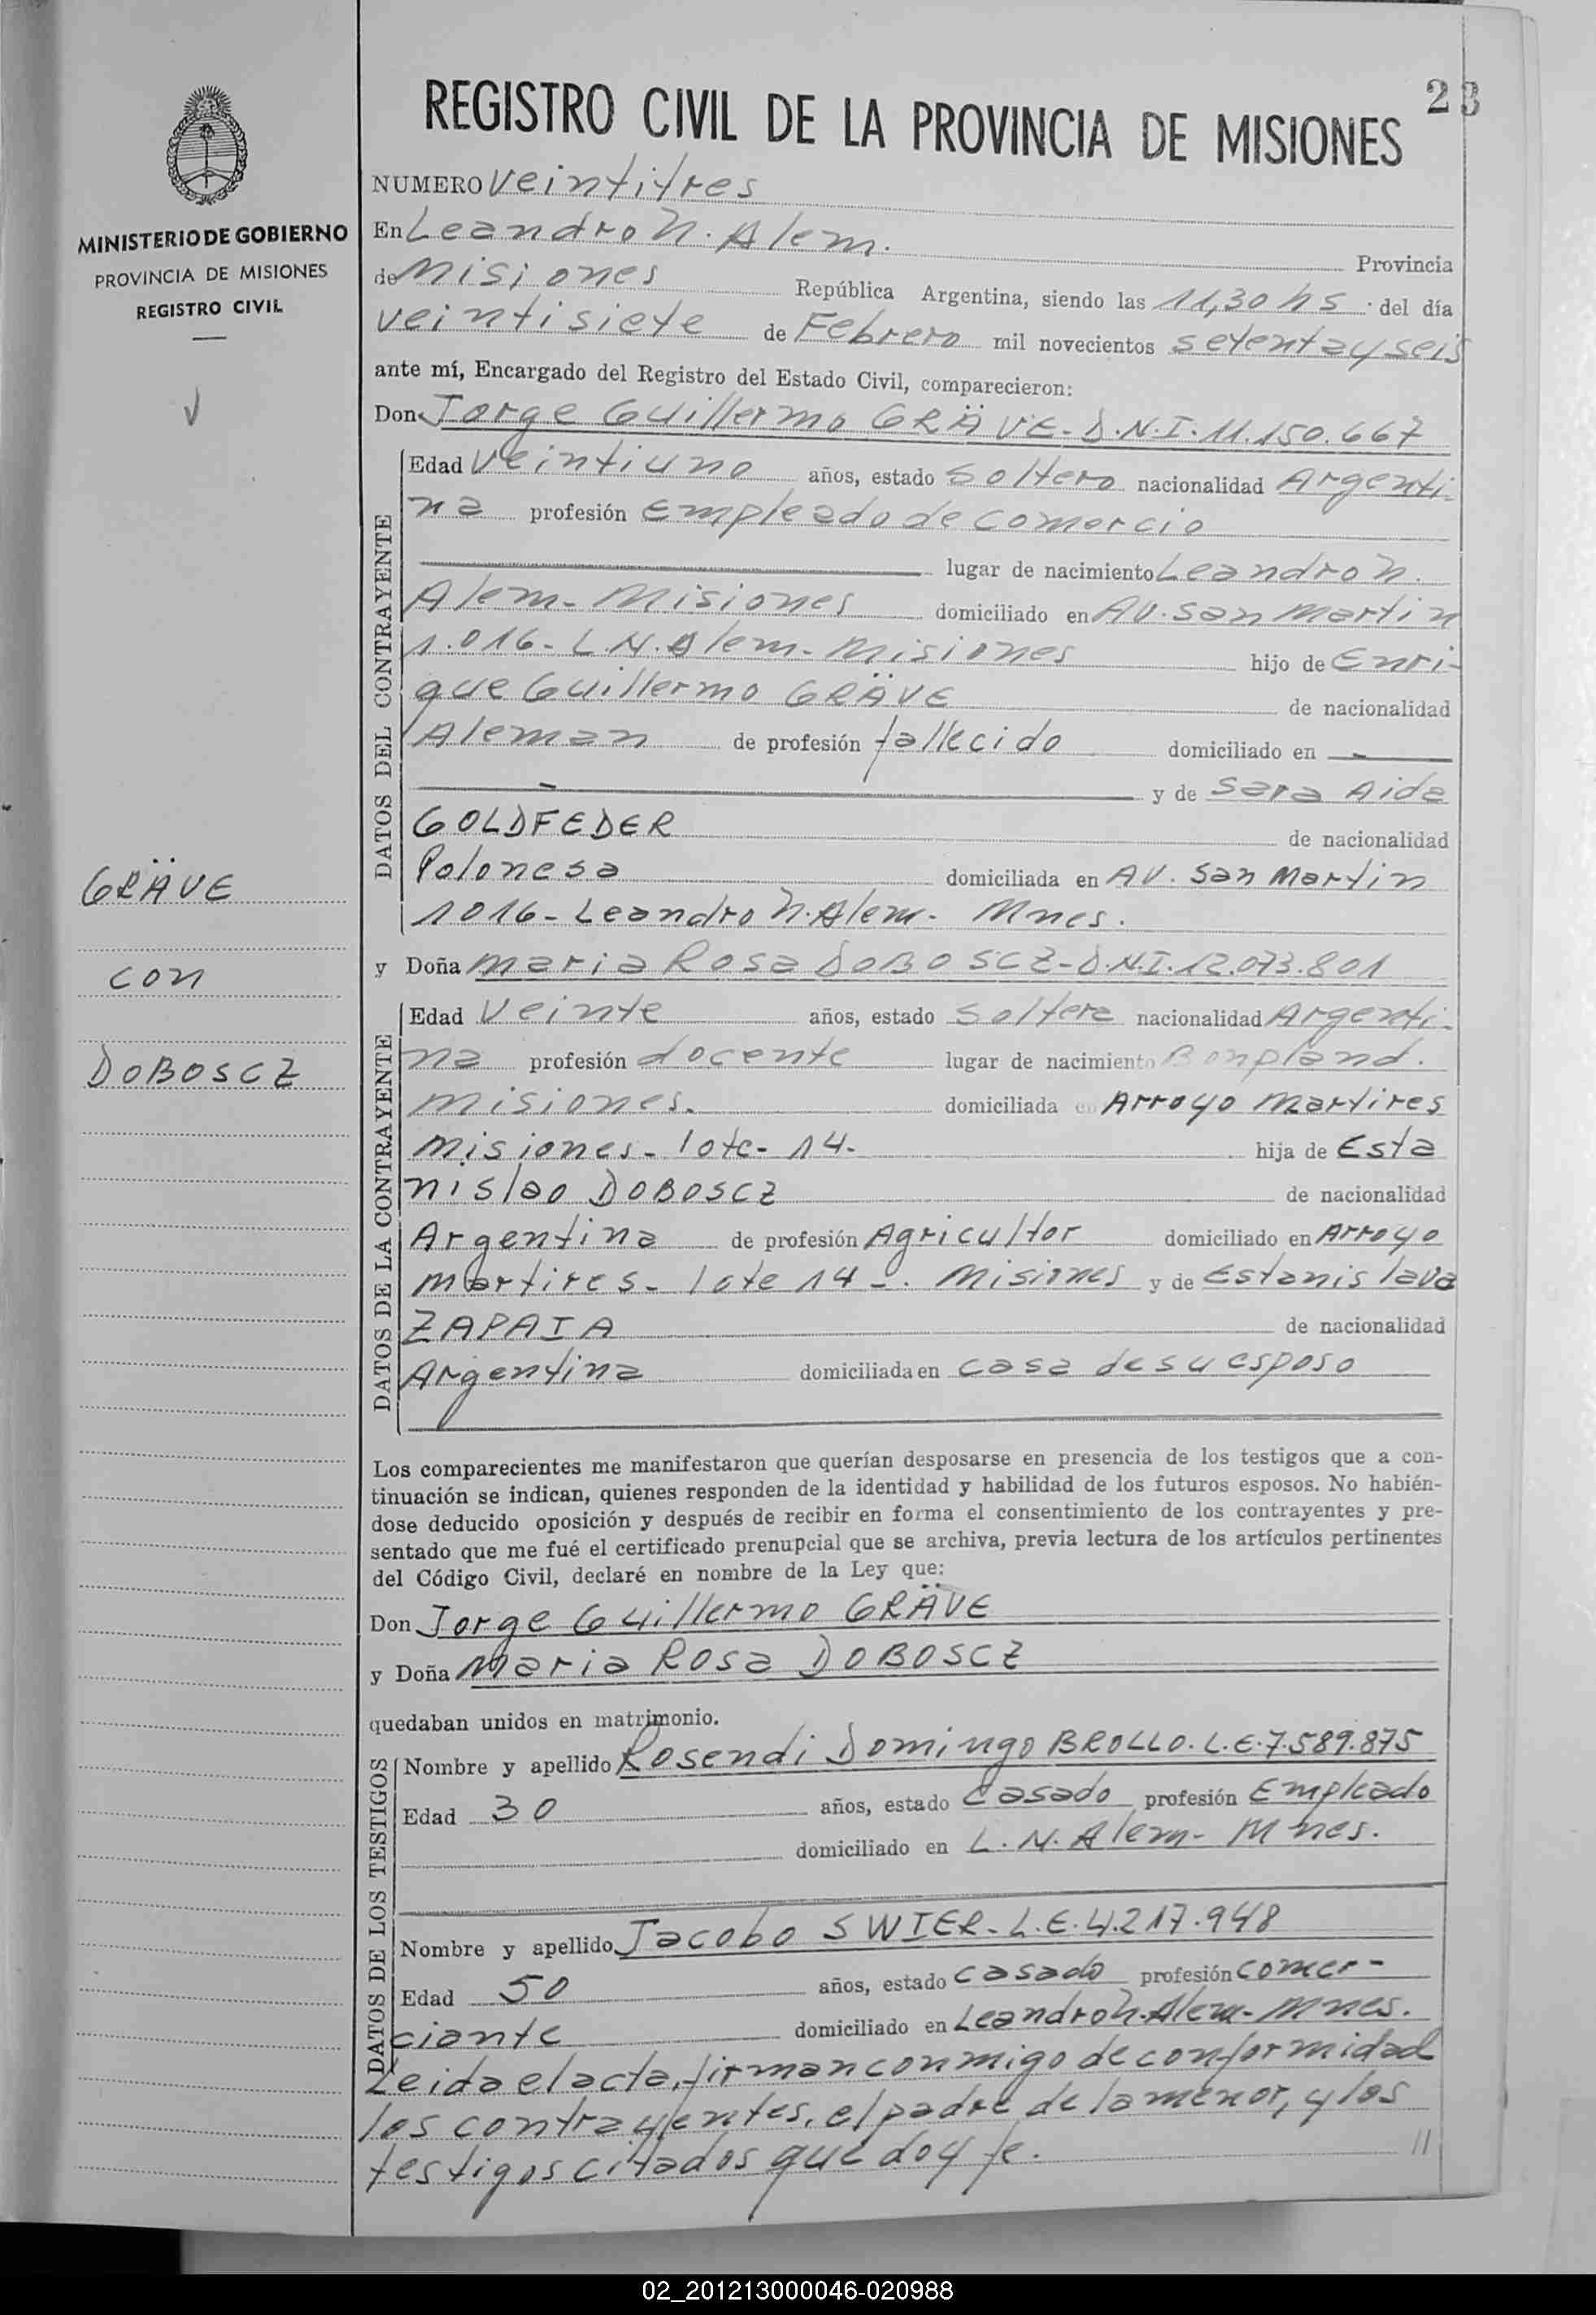 23
REGISTRO CIVIL DE LA PROVINCIA DE MISIONES
MINISTERIO DE GOBIERNO
PROVINCIA DE MISIONES
REGISTRO CIVIL
GRÄVE
con
DOBOSCZ
NUMERO veintitres
En Leandro N. Alem. Provincia
de Misiones República Argentina, siendo las 11,30 hs. del día
veintisiete de Febrero mil novecientos setenta y seis
ante mí, Encargado del Registro del Estado Civil, comparecieron:
Don Jorge Guillermo GRÄVE - D.N.I. 11.150.667
DATOS DEL CONTRAYENTE
Edad veintiuno años, estado soltero nacionalidad Argenti-
na profesión Empleado de comercio
lugar de nacimiento Leandro N.
Alem - Misiones domiciliado en AV. San Martin
1.016 - L.N. Alem - Misiones hijo de Enri-
que Guillermo GRÄVE de nacionalidad
Aleman de profesión fallecido domiciliado en -
- y de Sara Aida
GOLDFEDER de nacionalidad
Polonesa domiciliada en AV. San Martin
1016 - Leandro N. Alem - Mnes.
y Doña Maria Rosa DOBOSCZ - D.N.I. 12.073.801
DATOS DE LA CONTRAYENTE
Edad veinte años, estado soltera nacionalidad Argenti-
na profesión docente lugar de nacimiento Bonpland.
Misiones. domiciliada en Arroyo Martires
Misiones - lote - 14 - hija de Esta
nislao DOBOSCZ de nacionalidad
Argentina de profesión Agricultor domiciliado en Arroyo
Martires - lote 14 -. Misiones y de Estanislava
ZAPAIA de nacionalidad
Argentina domiciliada en casa de su esposo
Los comparecientes me manifestaron que querían desposarse en presencia de los testigos que a con-
tinuación se indican, quienes responden de la identidad y habilidad de los futuros esposos. No habién-
dose deducido oposición y después de recibir en forma el consentimiento de los contrayentes y pre-
sentado que me fué el certificado prenupcial que se archiva, previa lectura de los artículos pertinentes
del Código Civil, declaré en nombre de la Ley que:
Don Jorge Guillermo GRÄVE
y Doña Maria Rosa DOBOSCZ
quedaban unidos en matrimonio.
DATOS DE LOS TESTIGOS
Nombre y apellido Rosendi Domingo BROLLO. L.E. 7.589.875
Edad 30 años, estado casado profesión Empleado
domiciliado en L.N. Alem - Mnes.
Nombre y apellido Jacobo SWIER - L.E. 4.217.948
Edad 50 años, estado casado profesión comer-
ciante domiciliado en Leandro N. Alem - Mnes.
Leida el acta, firman conmigo de conformidad
los contrayentes, el padre de la menor, y los
testigos citados que doy fe. //
02_201213000046-020988